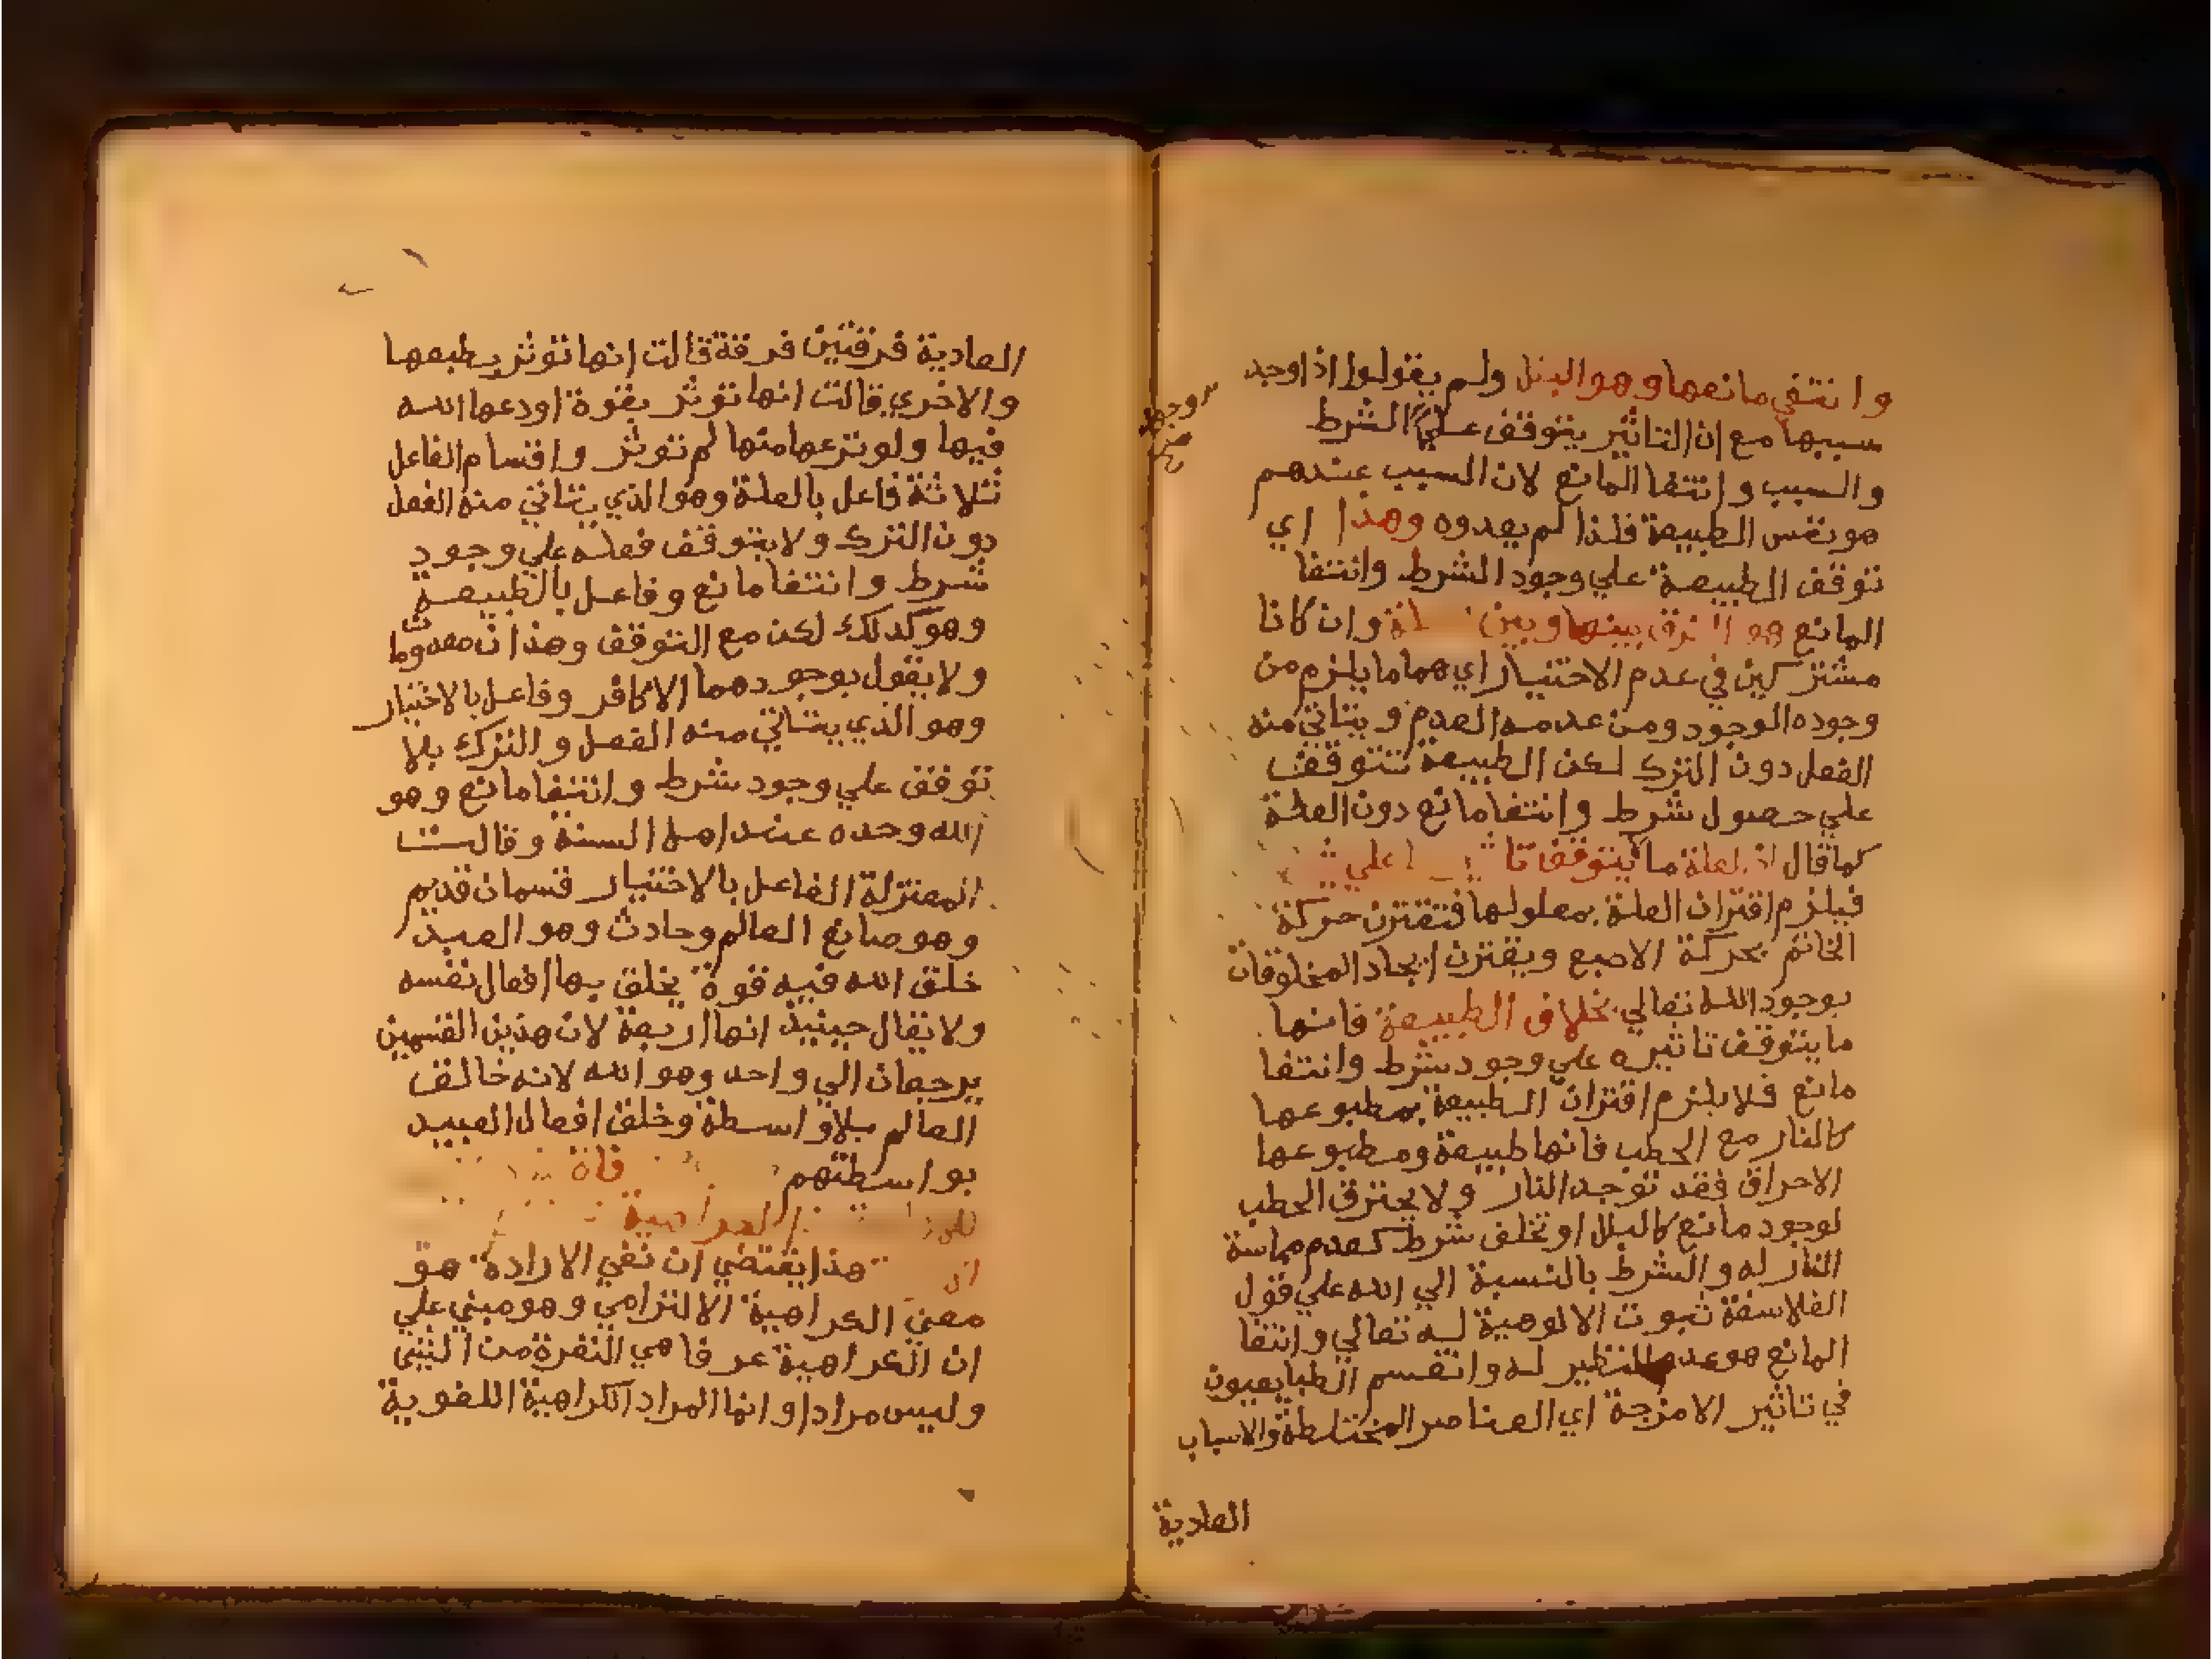 وانتفي مانعها وهو البلل ولم يقولوا اذا وجد
سببها مع ان التاثير يتوقف علي الشرط
والسبب وانتفا المانع لان السبب عندهم
هو نفس الطبيعة فلذا لم يعدوه وهذا اي
توقف الطبيعة علي وجود الشرط وانتفا
المانع هو الفرق بينها وبين وان كانا
مشتركين في عدم الاختيار اي هما ما يلزم من
وجوده الوجود ومن عدمه العدم ويتاتي منه
الفعل دون الترك لكن الطبيعة تتوقف
علي حصول شرط وانتفا مانع دون العلة
كما قال العلة ما يتوقف علي
فيلزم اقتران العلة بمعلولها فتقترن حركة
الخاتم بحركة الاصبع ويقترن ايجاد المخلوقات
بوجود الله تعالي بخلاف الطبيعة فانها
ما يتوقف تاثيره علي وجود شرط وانتفا
مانع فلا يلزم اقتران الطبيعة بمطبوعها
كالنار مع الحطب فانها طبيعة ومطبوعها
الاحراق فقد توجد النار ولا يحترق الحطب
لوجود مانع كالبلل او تخلف شرط كعدم مماسة
النار له والشرط بالنسبة الي الله علي قول
الفلاسفة ثبوت الالوهية له تعالي وانتفا
المانع هو عدم النظير له وانقسم الطبايعيون
في تاثير الامزجة اي العناصر المختلطة والاسباب
العادية
العادية فرقتين فرقة قالت انها توثر بطبعها
والاخري قالت انها توثر بقوة اودعها الله
فيها ولو نزعها منها لم توثر واقسام الفاعل
ثلاثة فاعل بالعلة وهو الذي يتاتي منه الفعل
دون الترك ولا يتوقف فعله علي وجود
شرط وانتفا مانع وفاعل بالطبيعة
وهو كذلك لكن مع التوقف وهذان معدومان
ولا يقول بوجودهما الا كافر وفاعل بالاختيار
وهو الذي يتاتي منه الفعل والترك بلا
توقف علي وجود شرط وانتفا مانع وهو
الله وحده عند اهل السنة وقالت
المعتزلة الفاعل بالاختيار قسمان قديم
وهو صانع العالم وحادث وهو العبد
خلق الله فيه قوة يخلق بها افعال نفسه
ولا يقال حينيذ انها اربعة لان هذين القسمين
يرجعان الي واحد وهو الله لانه خالق
العالم بلا واسطة وخلق افعال العبيد
بواسطتهم
الكراهية
هذا يقتضي ان نفي الارادة هو
معني الكراهية الالتزامي وهو مبني علي
ان الكراهية عرفا هي النفرة من الشي
وليس مرادا وانما المراد الكراهية اللغوية